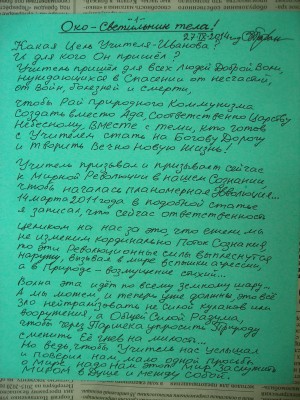 - 1 -
Око - Светильник тела!
27.IX.2014г
Какая Цель Учителя Иванова?
И для кого Он пришёл?
Учитель пришёл для всех Людей Доброй Воли
Нуждающихся в Спасении от несчастий,
от Войн, болезней и смерти,
чтобы Рай Природного Коммунизма
Создать вместо Ада, Соответственно Царству
Небесному, Вместе с теми, кто готов
с Учителем стать на Богову Дорогу
и Творить Вечно Новую Жизнь!
Учитель призывал и призывает сейчас
к Мирной Революции в нашем Сознании
чтобы началась планомерная Эволюция...
14 марта 2011 года в подобной статье
я записал, что сейчас ответственность
целиком на нас за то, что если мы
не изменим кординально Поток Сознания,
то эти Революционные силы выплеснутся
наружу, вызывая в мире вспышки агрессии,
а в Природе - возмущение стихий...
Волна эта идёт по всему земному шару...
А мы можем, и теперь уже должны это всё
зло нейтрализовать не Силой кулаков или
вооружения, а Общей Силой Разума,
чтобы через Паршека упросить Природу
сменить Её гнев на милость...
Но ведь, чтобы Учитель нас услышал
и поверил нам мало одной просьбы
о Мире, надо нам этот Мир заслужить
миром в Душе и между собой.